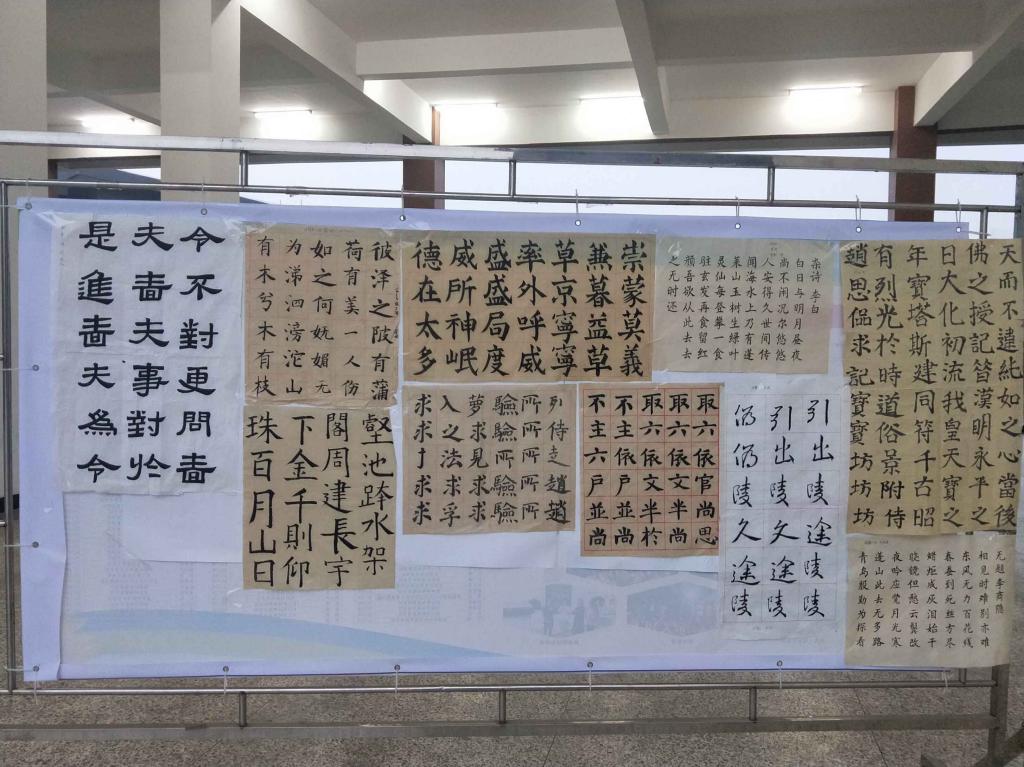 令不對更問嗇
夫嗇夫事對於
是進嗇夫為令
彼泽之陂有蒲
荷有美一人伤
如之何妩媚无
为涕泗滂沱山
有木兮木有枝
壑池跨水架
閣周建長宇
下金千則仰
珠百月山日
崇蒙莫義
無暮益草
草京寧寧
率外呼威
盛盛局度
威所神岷
德在太多
列待走趙趙
所所所所所
驗驗所驗驗
萝求見求求
入之法求孚
求求丁求求
取六依官尚思
取六依文半尚
取六依文半於
不主依戶並尚
不主六戶並尚
杂诗 李白
白日与明月昼夜
尚不闲况尔悠悠
人安得久世间传
闻海水上乃有蓬
莱山玉树生绿叶
灵仙每登攀一食
驻玄发再食留红
颜吾欲从此去去
之无时还
引出陵途陵陵
引出陵文途陵
仍仍陵久途陵
天而不違此如之心當後
佛之授記昔漢明永平之
日大化初流我皇天寶之
年寶塔斯建同符千古昭
有烈光於時道俗景附侍
趙思侃求記寶寶坊坊坊
无题李商隐
相见时难别亦难
东风无力百花残
春蚕到死丝方尽
蜡炬成灰泪始干
晓镜但愁云鬓改
夜吟应觉月光寒
蓬山此去无多路
青鸟殷勤为探看